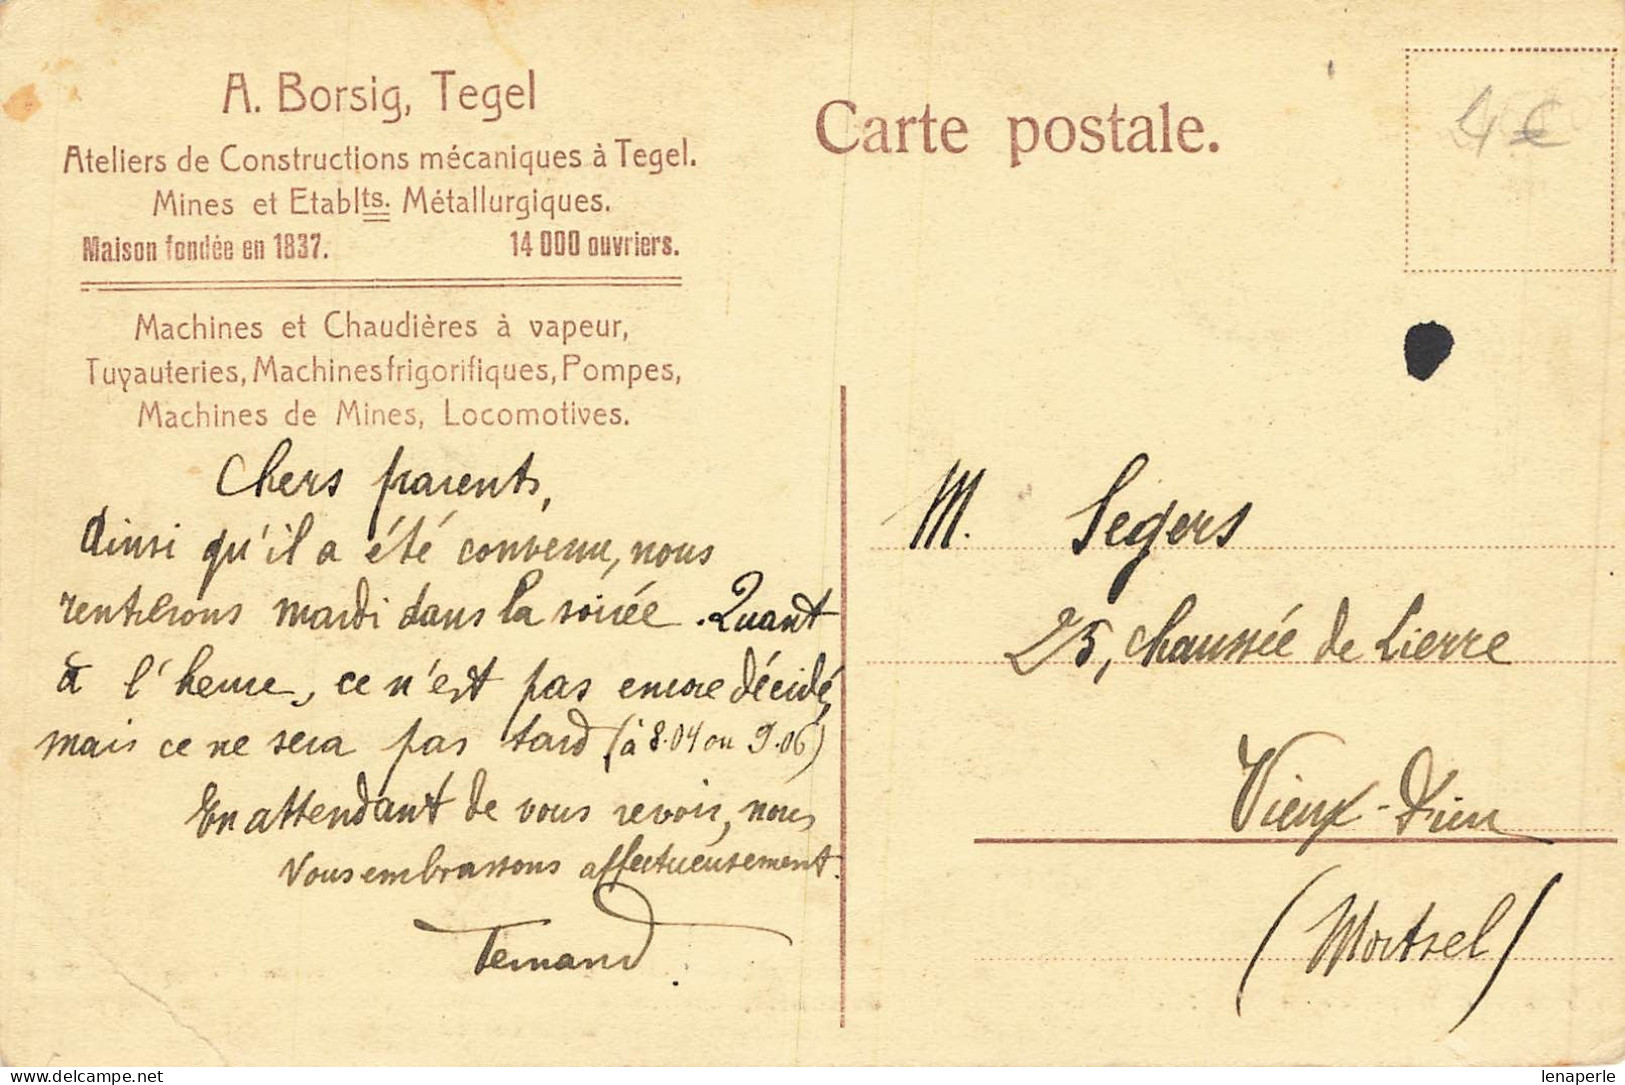 A. Borsig, Tegel
Ateliers de Constructions mécaniques à Tegel.
Mines et Etablts. Métallurgiques.
Maison fondée en 1837. 14 000 ouvriers.
Machines et Chaudières à vapeur,
Tuyauteries, Machines frigorifiques, Pompes,
Machines de Mines, Locomotives.
Chers parents,
Ainsi qu'il a été convenu, nous
rentrerons mardi dans la soirée. Quant
à l'heure, ce n'est pas encore décidé,
mais ce ne sera pas tard (à 8.04 ou 9.06)
En attendant de vous revoir, nous
vous embrassons affectueusement.
Fernand.
Carte postale.
4 €
M. Segers
25, chaussée de Lierre
Vieux-Dieu
(Mortsel)
delcampe.net
lenaperle